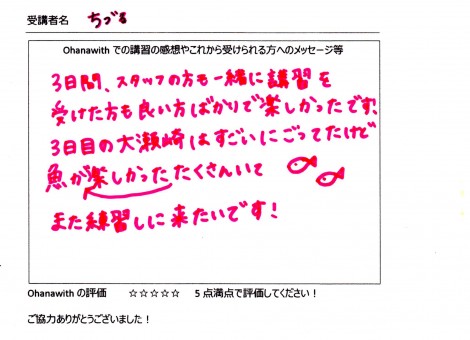 受講者名 ちづる
Ohanawith での講習の感想やこれから受けられる方へのメッセージ等
3日間、スタッフの方も一緒に講習を
受けた方も良い方ばかりで楽しかったです!
3日目の大瀬崎はすごいにごってたけど
魚が楽しかったたくさんいて
また練習しに来たいです!
Ohanawith の評価 ☆☆☆☆☆ 5点満点で評価してください!
ご協力ありがとうございました!